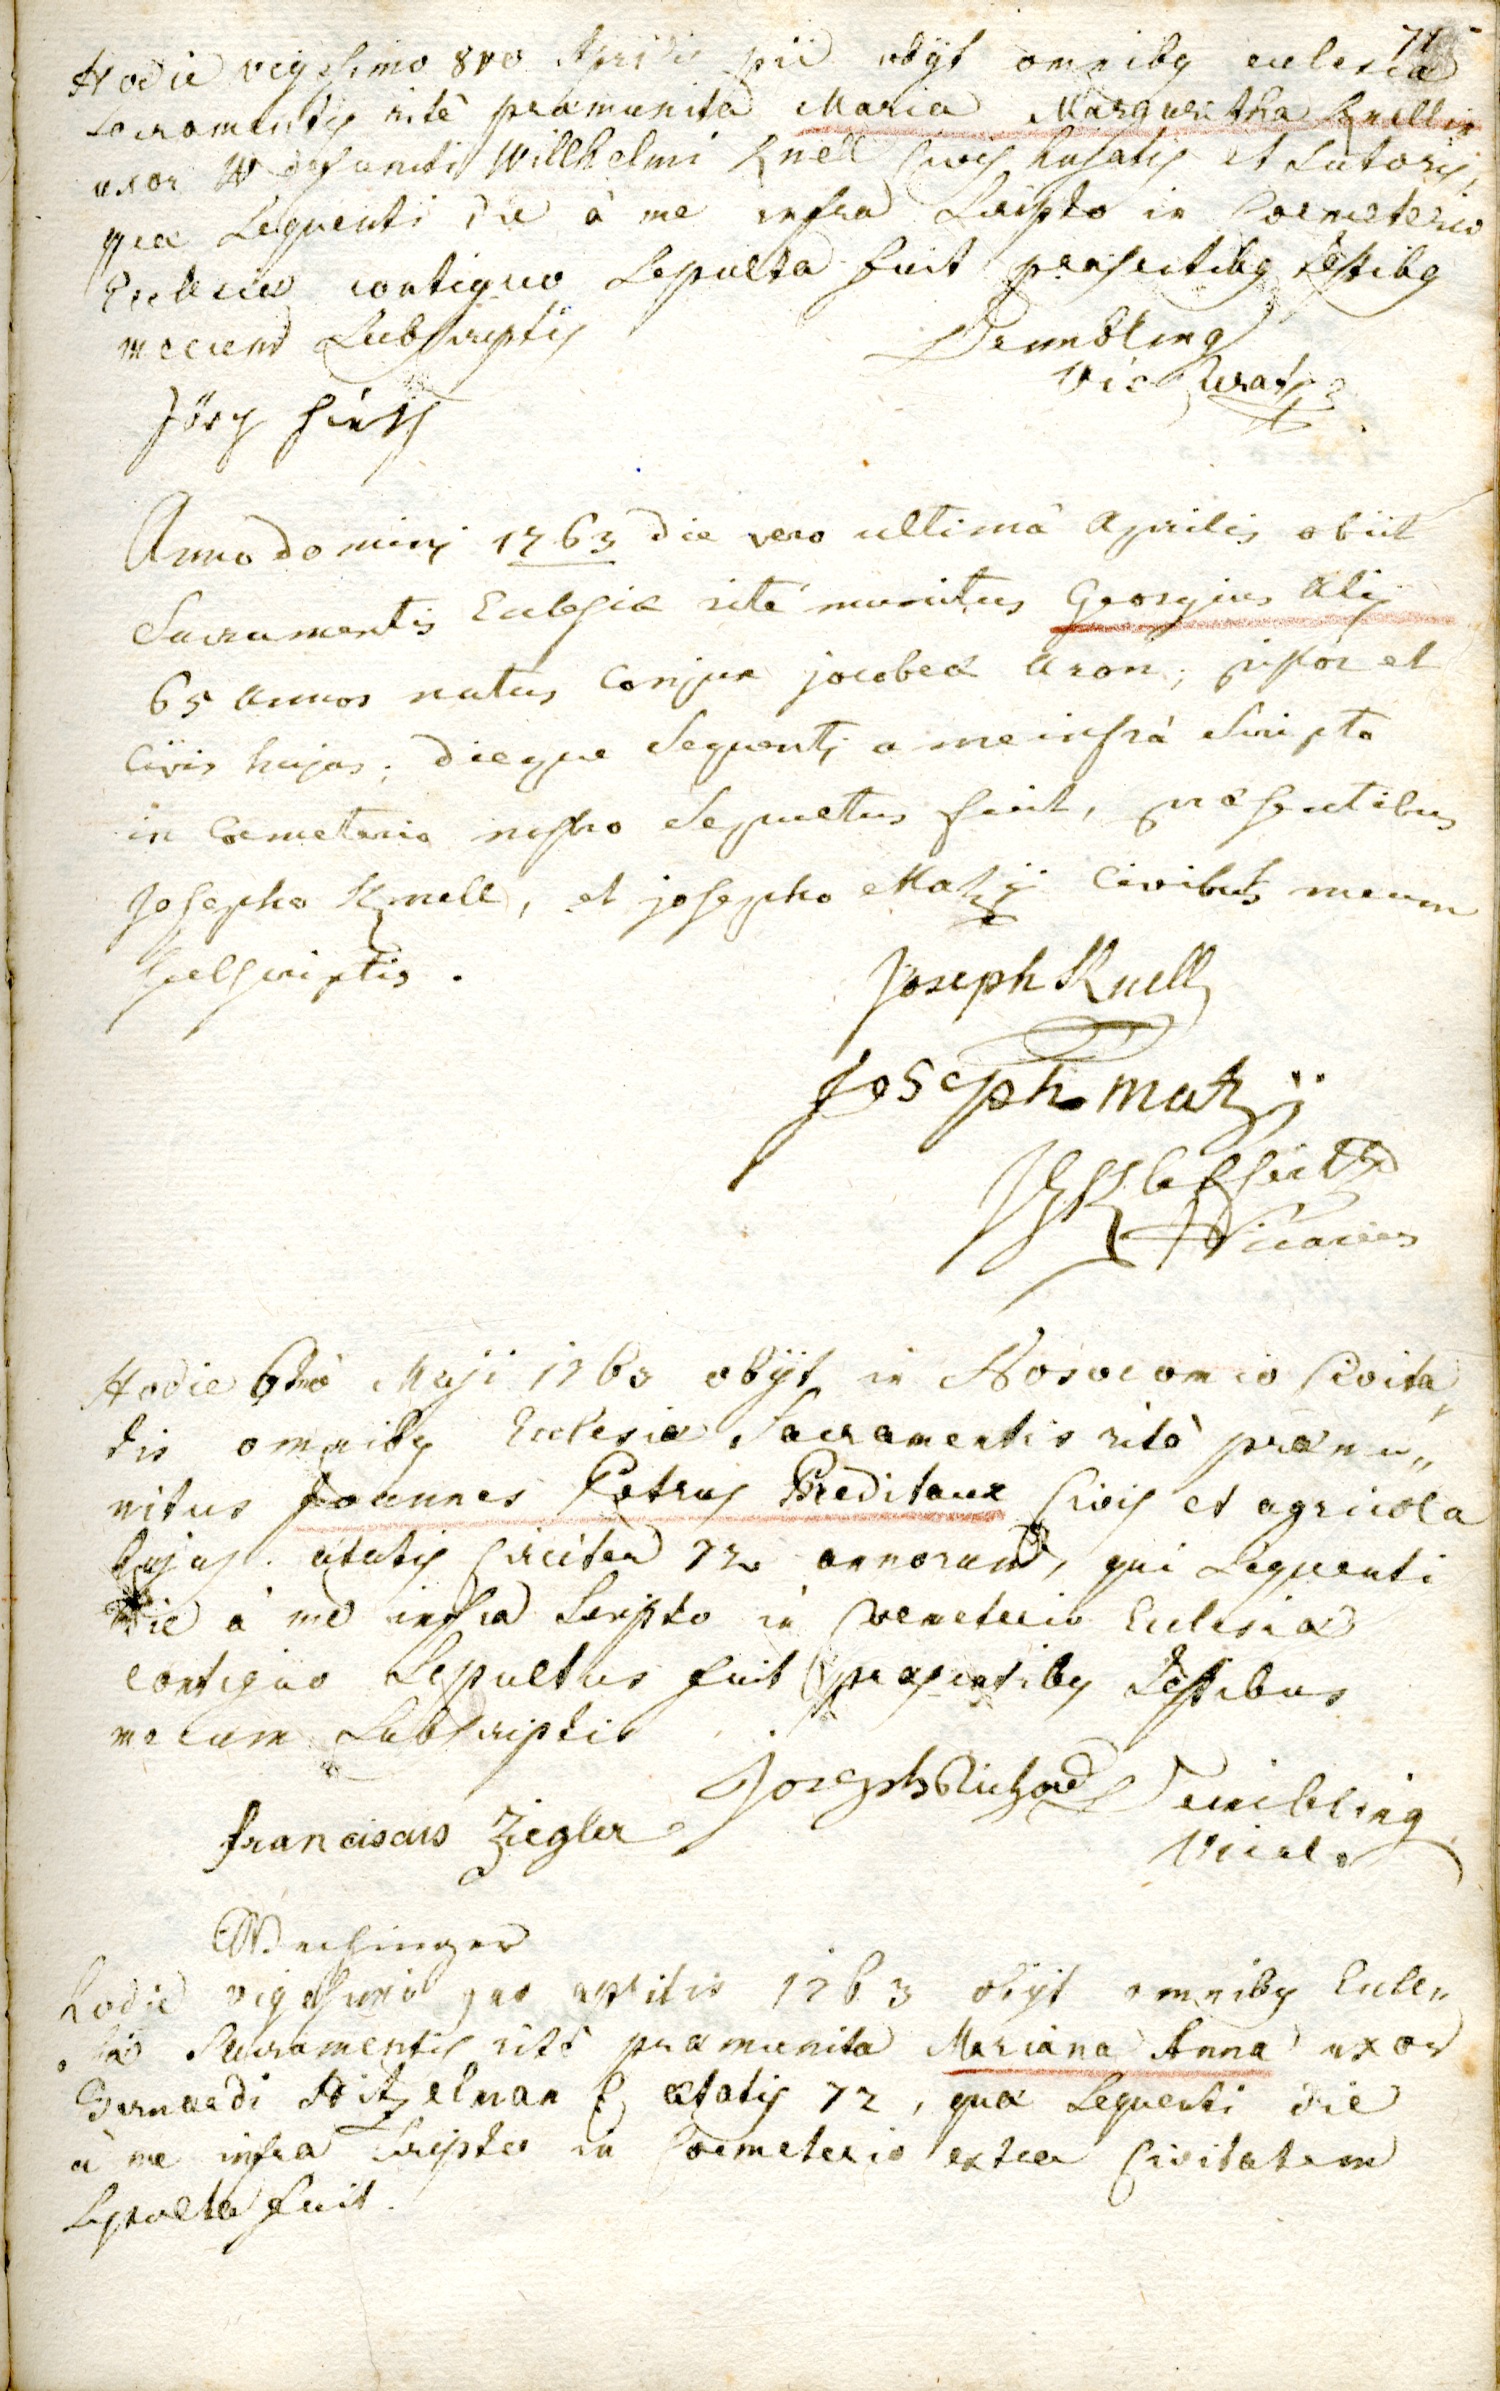 71
Hodie vigesimo 8vo Aprilis pie obijt omnibq ecclesiæ
Sacramentis ritè præmunita Maria Margaritha Knellin
uxor defuncti Willhelmi Knell Civis hujatis et Sutoris,
quæ Sequenti die à me infra Scripto in Coemeterio
Ecclesiæ contiguo Sepulta fuit præsentibq testibq
mecum Subscriptis
Vic
Anno domini 1763 die vero ultimâ Aprilis obiit
Sacramentis Ecclesiæ ritè munitus Georgius
65 annos natus Conjux jacobeæ Aron, et
Civis hujas, dieque Sequenti a me infrà Scripto
in Coemeterio nostro Sepultus fuit, præsentibus
Josepho Knell, et josepho Matzÿ Civibus mecum
subscriptis.
Joseph Knell
Joseph matzÿ
Vicarius
Hodie 6tò Maji 1763 obijt in Nosocomio Civita
tis omnibq Ecclesiæ Sacramentis ritè præmu„
nitus Joannes Petrus Preditaux Civis et agricola
hujas. ætatis Circiter 72 annorum, qui Sequenti
die à me infra Scripto in Coemeterio Ecclesiæ
contiguo Sepultus fuit præsentibq Testibus
mecum Subscriptis
Joseph Richard
Franciscus Ziegler
hodie vigesimo aprilis 1763 obijt omnibq Eccle„
siæ Sacramentis ritè præmunita Mariana Anna uxor
Bernardi Hitzelman ætatis 72, quæ Sequenti die
à me infra Scripto in Coemeterio extra Civitatem
Sepulta fuit.